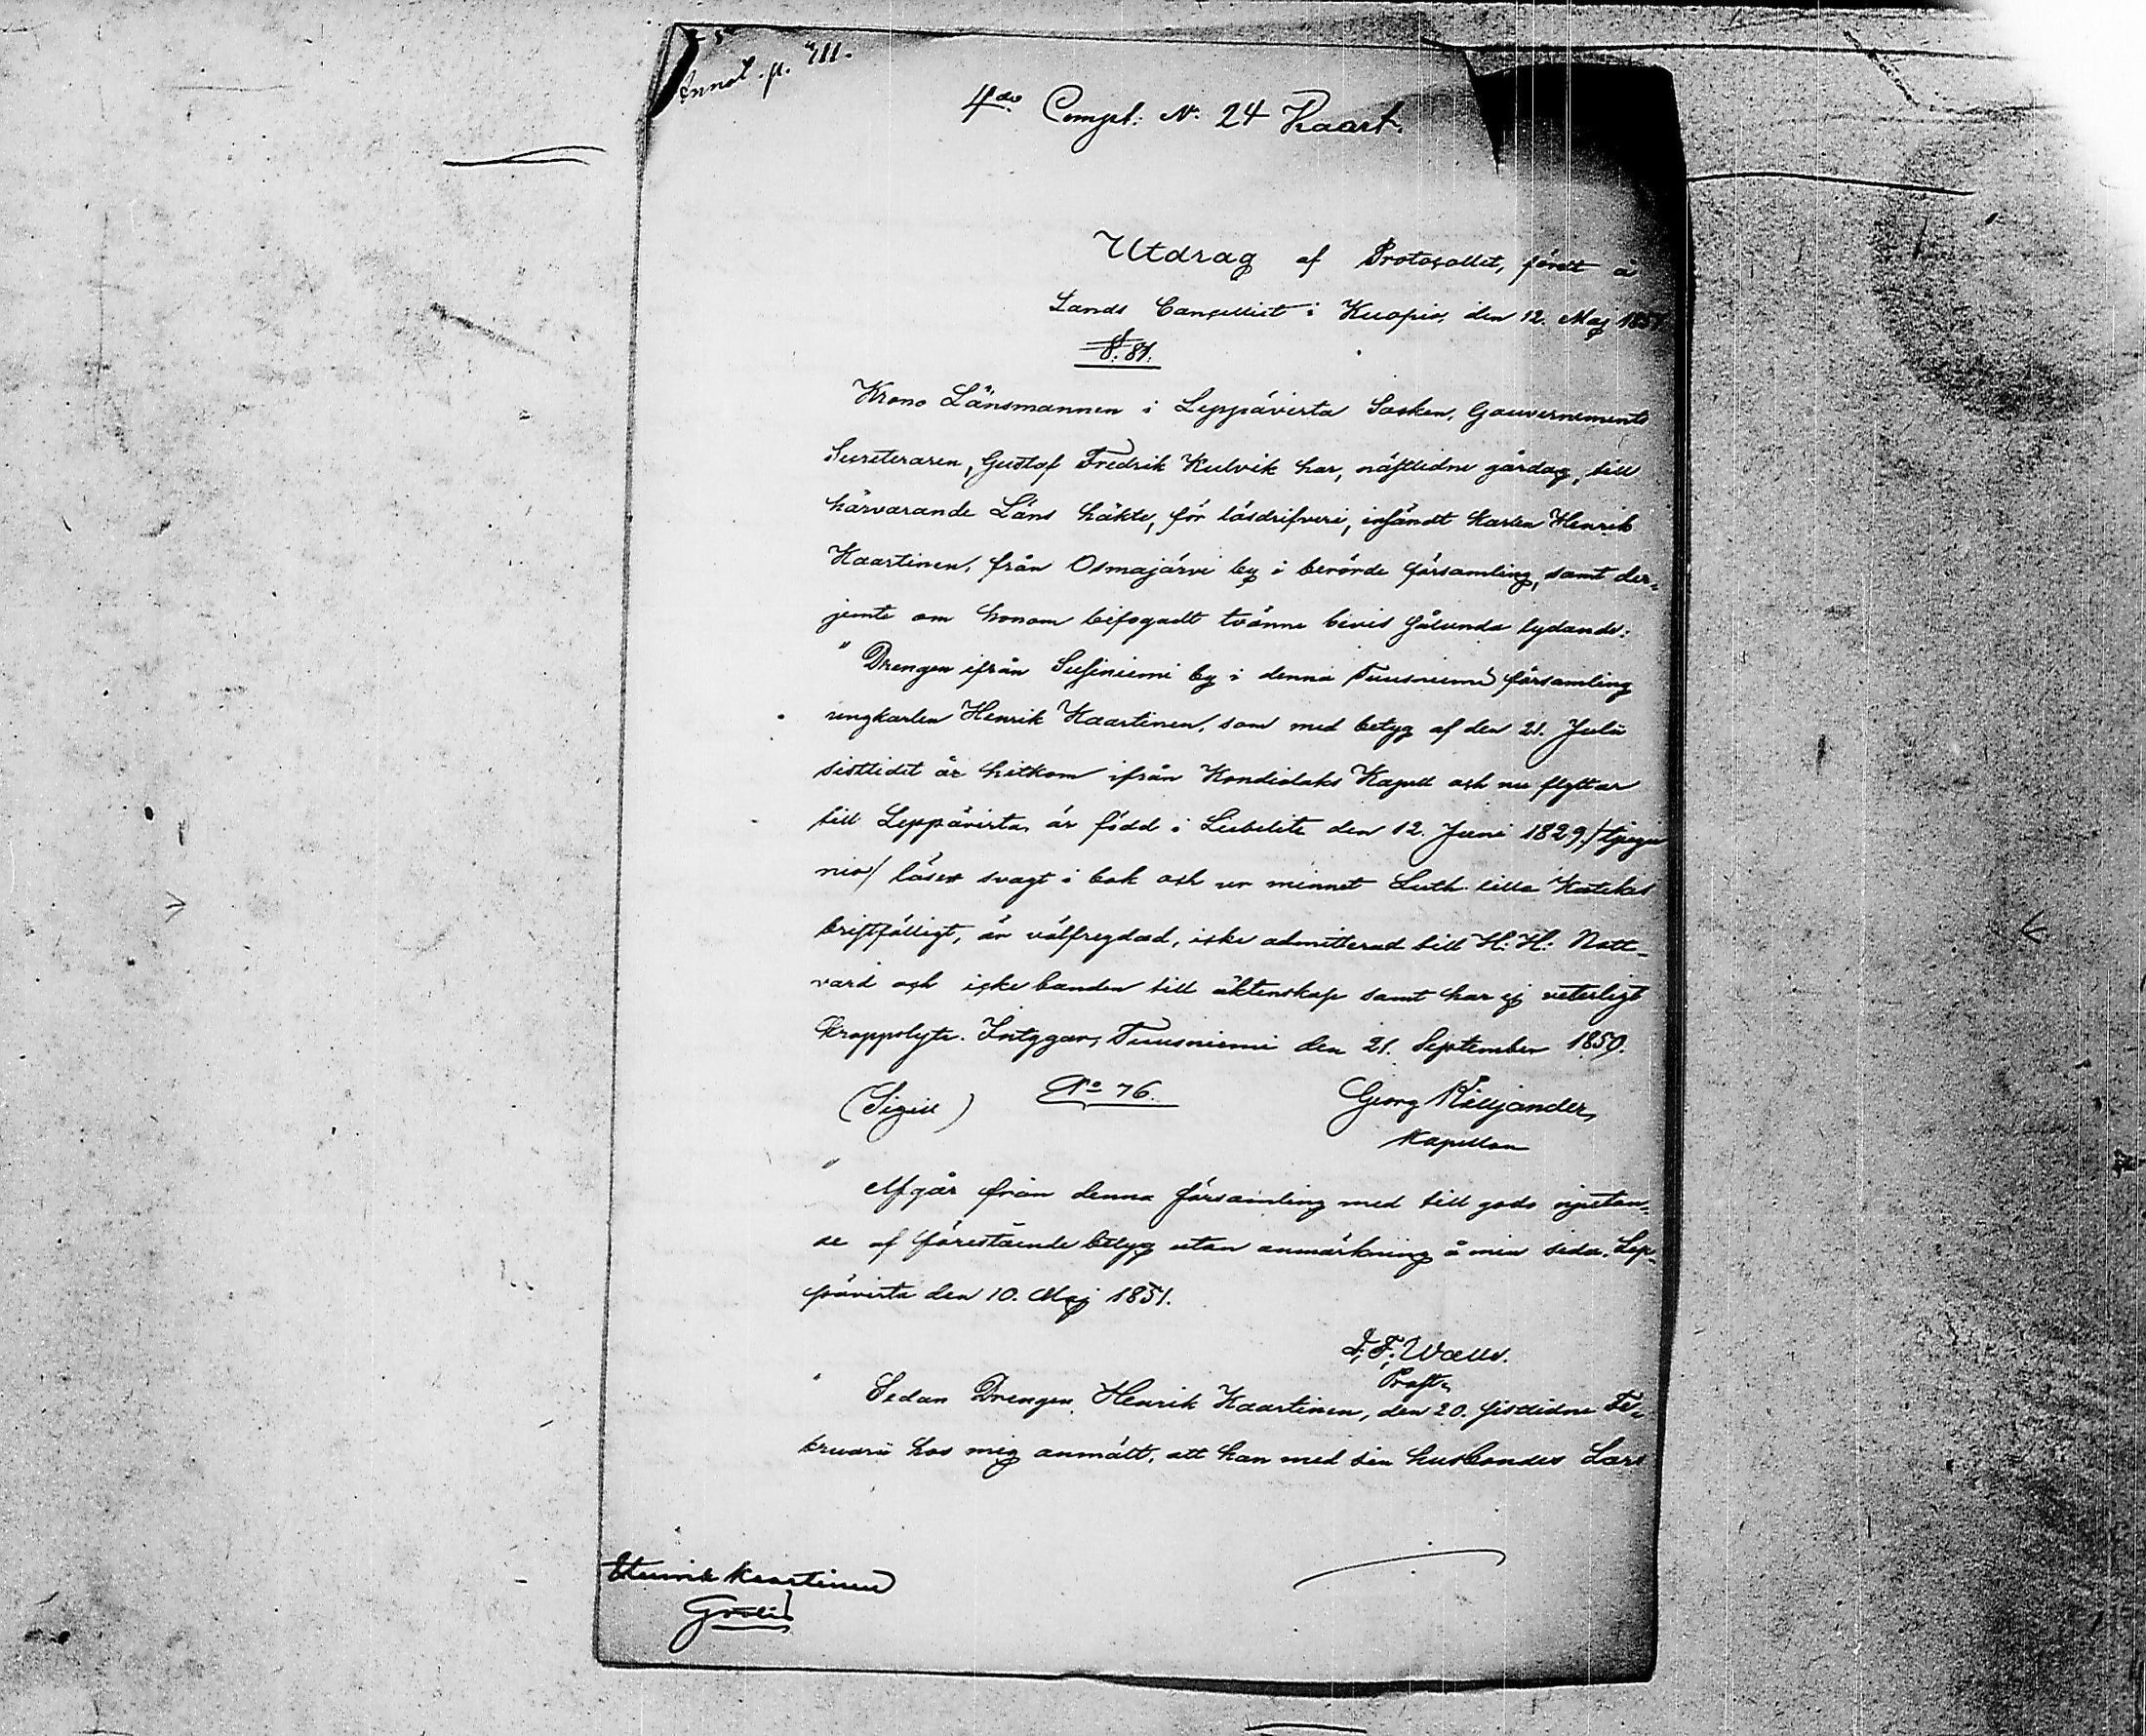 Annot. p. 411.
4de Compt: N: 24 Kaart.
Utdrag af Protocollet, fördt å
Lands Cancelliet i Kuopio, den 12. Maj 1851
§. 81.
Krono Länsmannen i Leppävirta Socken, Gouvernements
Secreteraren, Gustaf Fredrik Kulvik har, nästlidne gårdag, till
härvarande Läns häkte, för lösdrifveri, insändt karlen Henrik
Kaartinen, från Osmajärvi by i berörde församling, samt der-
jemte om honom bifogadt tvänne bevis sålunda lydande:
"Drengen ifrån Susiniemi by i denna Tuusniemi församling
ungkarlen Henrik Kaartinen, som med betyg af den 21. Julii
sistlidet år hitkom ifrån Kondiolaks Kapell och nu flyttar
till Leppävirta, är född i Libelits den 12. Juni 1829
läser svagt i bok och ur minnet Luth. lilla Kateches
bristfälligt, är välfregdad, icke admitterad till H. H. Natt-
vard och icke bunden till äktenskap samt har ej veterligt
kroppslyte. Intygar, Tuusniemi den 21. September 1850.
(Sigill) No 76. Georg Killjander,
Kapellan
"Afgår från denna församling med till godo njutan-
de af förestående betyg utan anmärkning å min sida. Lep-
pävirta den 10. Maj 1851.
J. F. Walle.
Prost.
"Sedan Drengen Henrik Kaartinen, den 20. sistlidne Fe-
bruarii hos mig anmält, att han med sin husbondes Lars
Henrik Kaartinen
Gratis